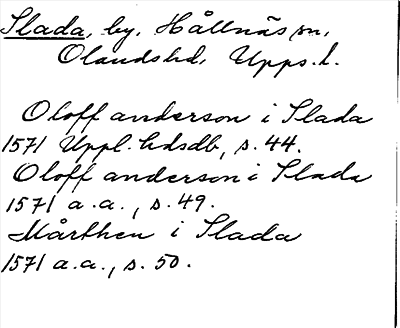 Slada, by, Hållnäs sn,
Olandshd, Upps. l.
Oloff anderson i Slada
1571 Uppl. hdsdb, s. 44.
Oloff anderson i Slada
1571 a. a., s. 49.
Mårthen i Slada
1571 a. a., s. 50.